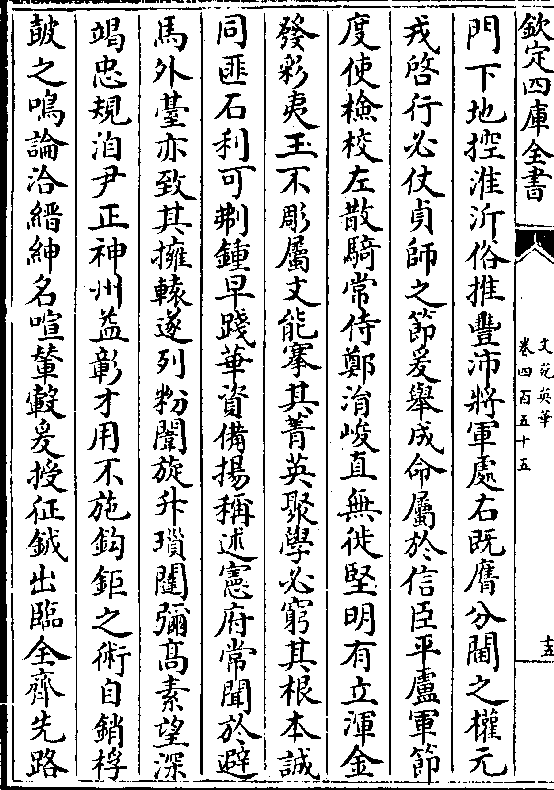 欽定四庫全書
文苑英華
卷四百五十五
十五
門下地控淮沂俗推豐沛將軍處右既膺分閫之權元
戎啓行必仗貞師之節爰舉成命屬於信臣平盧軍節
度使檢校左散騎常侍鄭涓峻直無徙堅明有立渾金
發彩夷玉不彫屬文能搴其菁英聚學必窮其根本誠
同匪石利可剸鍾早踐華資備揚稱述憲府常聞於避
馬外臺亦致其擁轅遂列粉闈旋升瑣闥彌髙素望深
竭忠規洎尹正神州益彰才用不施鈎鉅之術自銷桴
鼓之鳴論洽縉紳名喧輦轂爰授征鉞出臨全齊先路